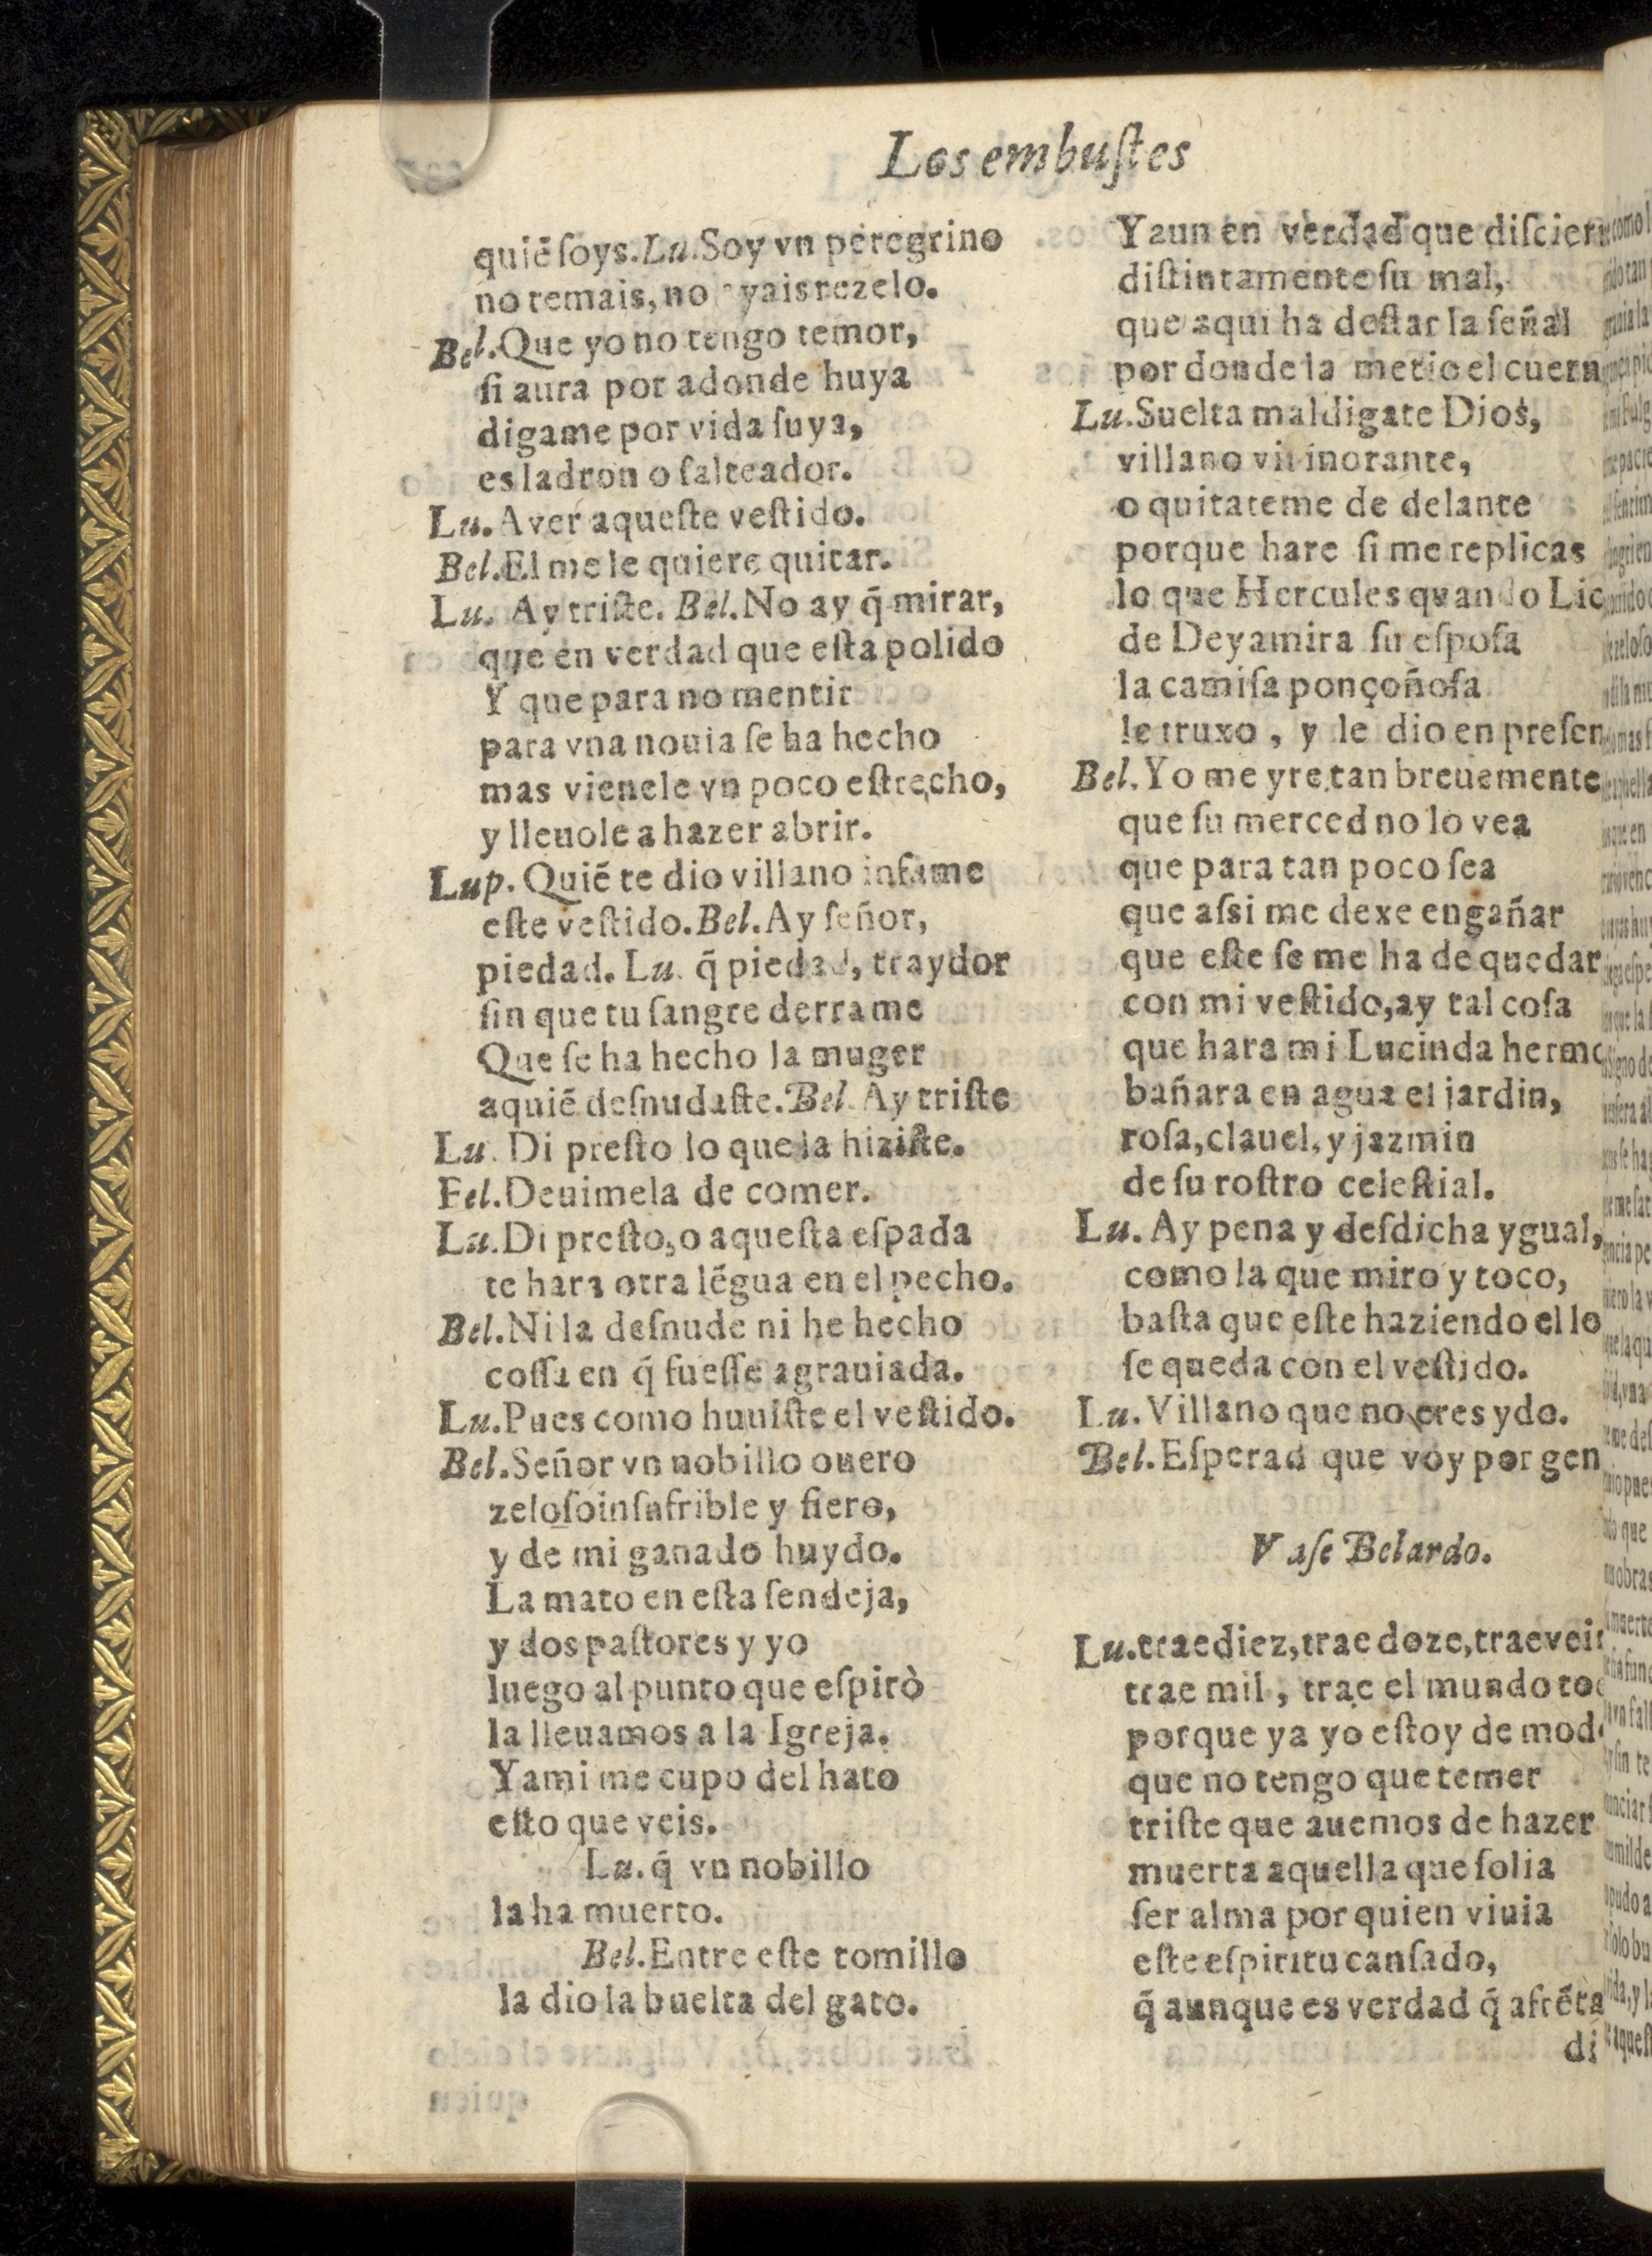 Los embuſtes
quiẽ ſoys. Lu. Soy vn peregrino
no temais, no yais rezelo.
Bel. Que yo no tengo temor,
ſi aura por adonde huya
digame por vida ſuya,
es ladron o ſalteador.
Lu. A ver aqueſte veſtido.
Bel. El me le quiere quitar.
Lu. Ay triſte. Bel. No ay q̃ mirar,
que en verdad que eſta polido
Y que para no mentir
para vna nouia ſe ha hecho
mas vienele vn poco eſtrecho,
y lleuole a hazer abrir.
Lup. Quiẽ te dio villano infame
eſte veſtido. Bel. Ay ſeñor,
piedad. Lu. q̃ piedad, traydor
ſin que tu ſangre derrame
Que ſe ha hecho la muger
aquiẽ deſnudaſte. Bel. Ay triſte
Lu. Di preſto lo que la hiziſte.
Fel. Deuimela de comer.
Lu. Di preſto, o aqueſta eſpada
te hara otra lẽgua en el pecho.
Bel. Ni la deſnude ni he hecho
coſſa en q̃ fueſſe agrauiada.
Lu. Pues como huuiſte el veſtido.
Bel. Señor vn nobillo ouero
zeloſo inſufrible y fiero,
y de mi ganado huydo.
La mato en eſta ſendeja,
y dos paſtores y yo
luego al punto que eſpirò
la lleuamos a la Igreja.
Y a mi me cupo del hato
eſto que veis.
Lu. q̃ vn nobillo
la ha muerto.
Bel. Entre eſte tomillo
la dio la buelta del gato.
Y aun en verdad que diſcier
diſtintamente ſu mal,
que aqui ha deſtar la ſeñal
por donde la metio el cuern
Lu. Suelta maldigate Dios,
villano vil inorante,
o quitateme de delante
porque hare ſi me replicas
lo que Hercules quando Lic
de Deyamira ſu eſpoſa
la camiſa ponçoñoſa
le truxo, y le dio en preſen
Bel. Yo me yre tan breuemente
que ſu merced no lo vea
que para tan poco ſea
que aſsi me dexe engañar
que eſte ſe me ha de quedar
con mi veſtido, ay tal coſa
que hara mi Lucinda hermo
bañara en agua el jardin,
roſa, clauel, y jazmin
de ſu roſtro celeſtial.
Lu. Ay pena y deſdicha ygual,
como la que miro y toco,
baſta que eſte haziendo el lo
ſe queda con el veſtido.
Lu. Villano que no eres ydo.
Bel. Eſperad que voy por gen
Vaſe Belardo.
Lu. trae diez, trae doze, trae vein
trae mil, trae el mundo to
porque ya yo eſtoy de mod
que no tengo que temer
triſte que auemos de hazer
muerta aquella que ſolia
ſer alma por quien viuia
eſte eſpiritu canſado,
q̃ aunque es verdad q̃ afrẽta
di